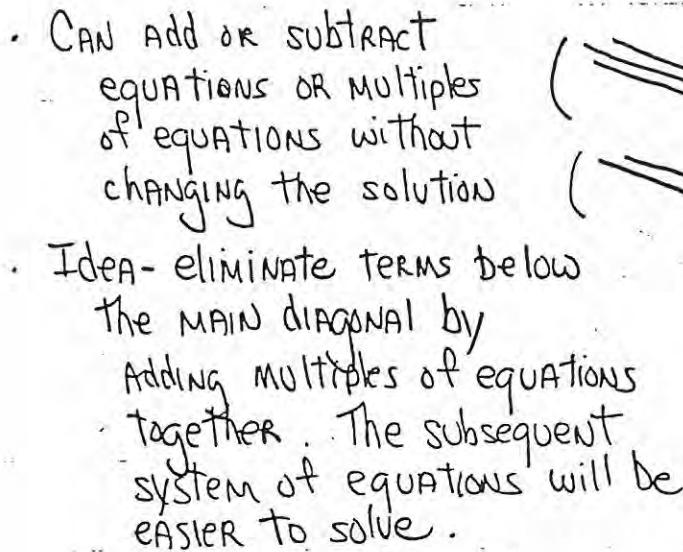 . CAN Add OR SUbtRACT
equATIONS OR MULTIPLES
of equATIONS without
chANGING the solution
. IdeA- eliMINATE TERMS below
the MAIN dIAGONAl by
AddING MULTIPLES of equATIONS
togetheR. The subsequent
system of equATIONS will be
eASIER to solve.